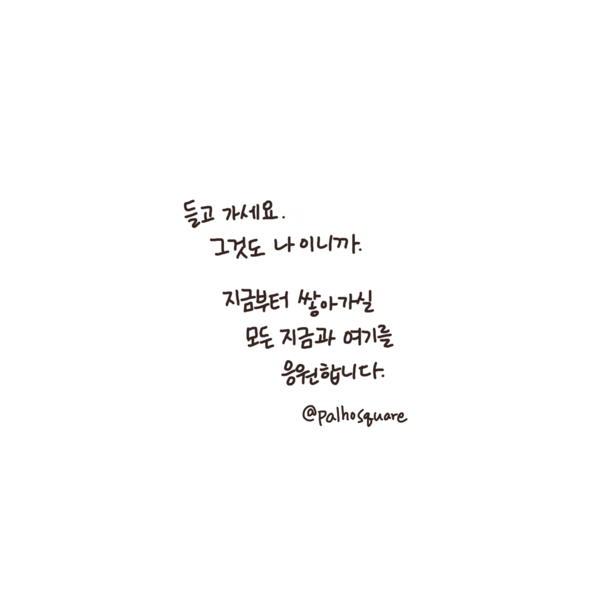 들고 가세요.
그것도 나이니까.
지금부터 쌓아가실
모든 지금과 여기를
응원합니다.
@palhosquare